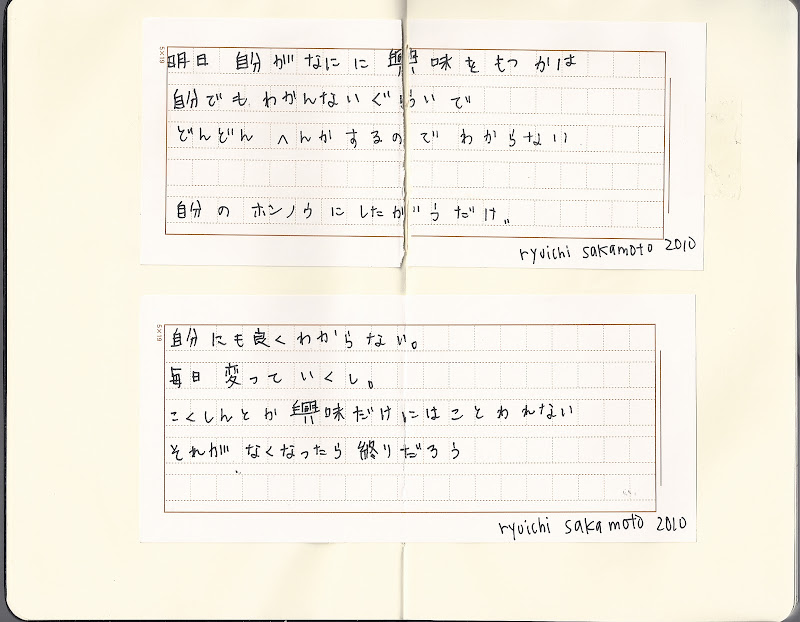 5×19
明日 自分がなにに興味をもつかは
自分でもわかんないぐらいで
どんどん へんかするのでわからない
自分のホンノウにしたがうだけ。
ryuichi sakamoto 2010
5×19
自分にも良くわからない。
毎日 変っていくし。
こくしんとか興味だけにはことわれない
それがなくなったら終りだろう
ryuichi sakamoto 2010